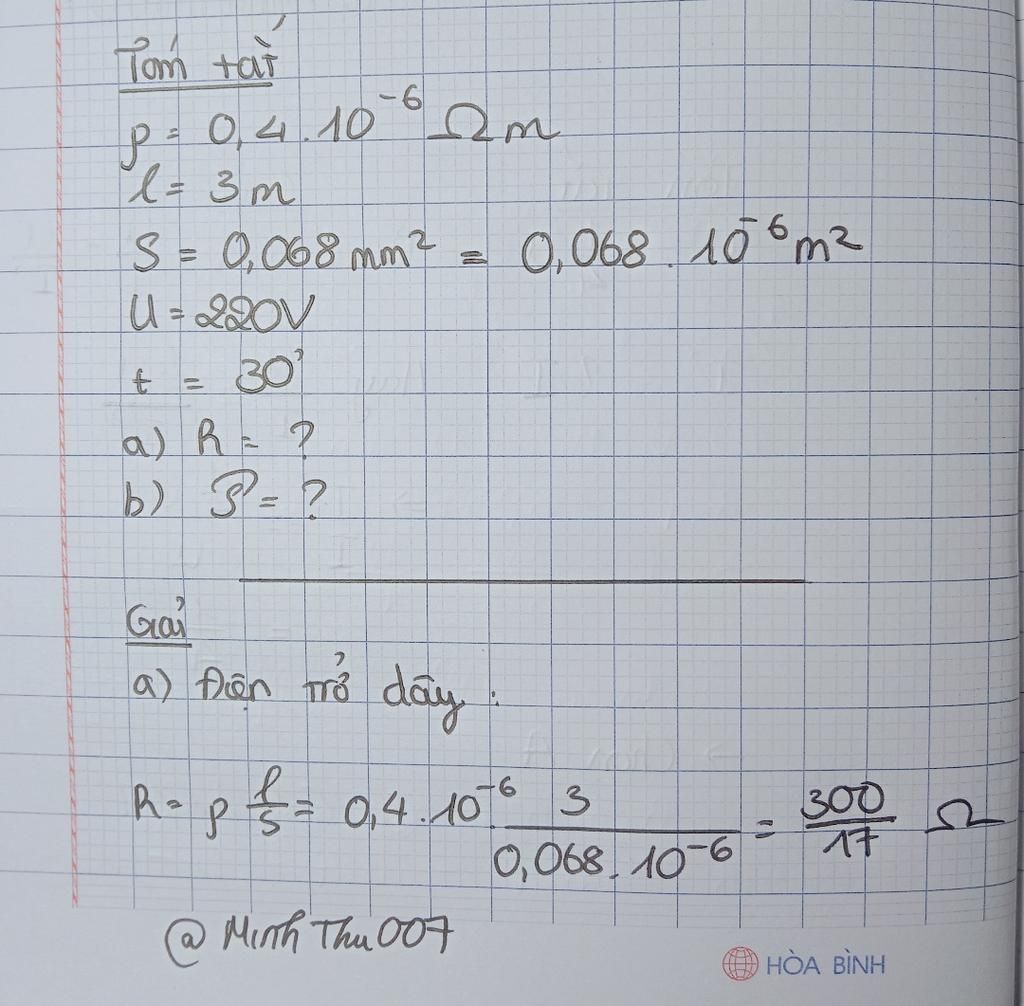 Tóm tắt
ρ = 0,4 . 10⁻⁶ Ωm
l = 3m
S = 0,068 mm² = 0,068 . 10⁻⁶ m²
U = 220V
t = 30'
a) R = ?
b) 𝒫 = ?
Giải
a) Điện trở dây :
R = ρ l/S = 0,4 . 10⁻⁶ 3/(0,068 . 10⁻⁶) = 300/17 Ω
@MinhThu007
HÒA BÌNH